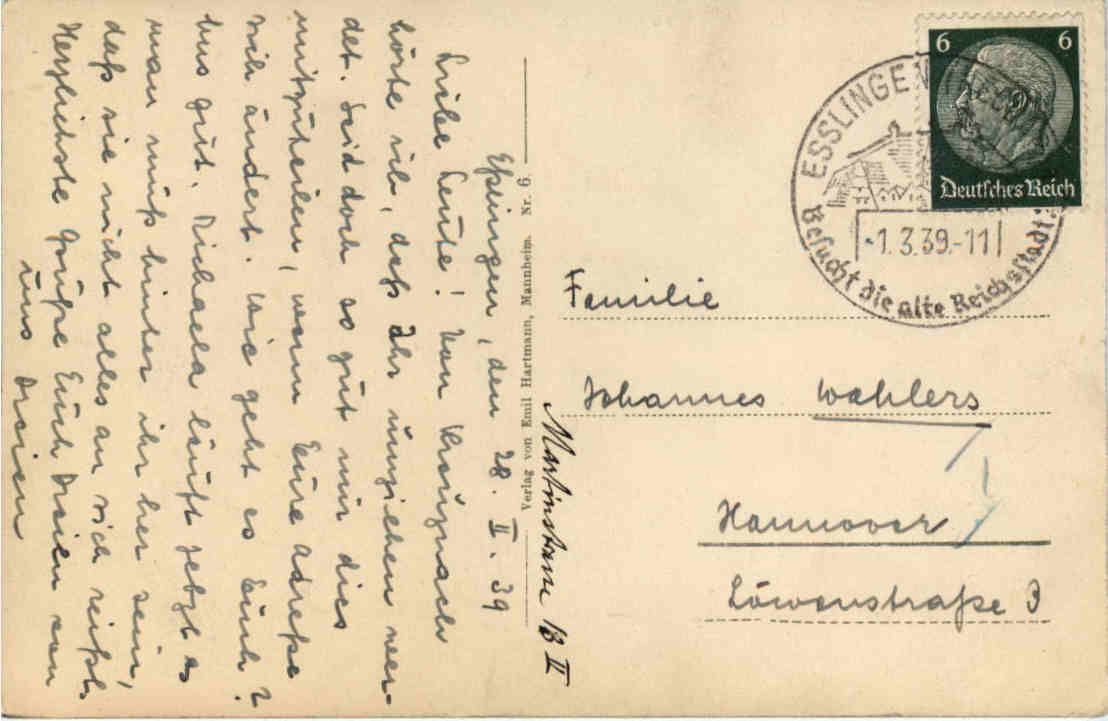 Eßlingen, den 28. II. 39
Liebe Leute! Von Kreuznach
hörte ich, daß Ihr umziehen wer-
det. Seid doch so gut mir dies
mitzuteilen, wenn Eure Adreße
sich ändert. Wie geht es Euch?
Uns gut. Michaela läuft jetzt es
man muß hinter ihr her sein,
daß sie nicht alles an sich reißt.
Herzlichste Grüße Euch Dreien von
uns Dreien
Verlag von Emil Hartmann, Mannheim. Nr. 6.
Martinstrasse 13 II
6 6
Deutsches Reich
ESSLINGEN
-1.3.39.-11
Besucht die alte Reichsstadt
Familie
Johannes Wahlers
Hannover
Löwenstraße 9